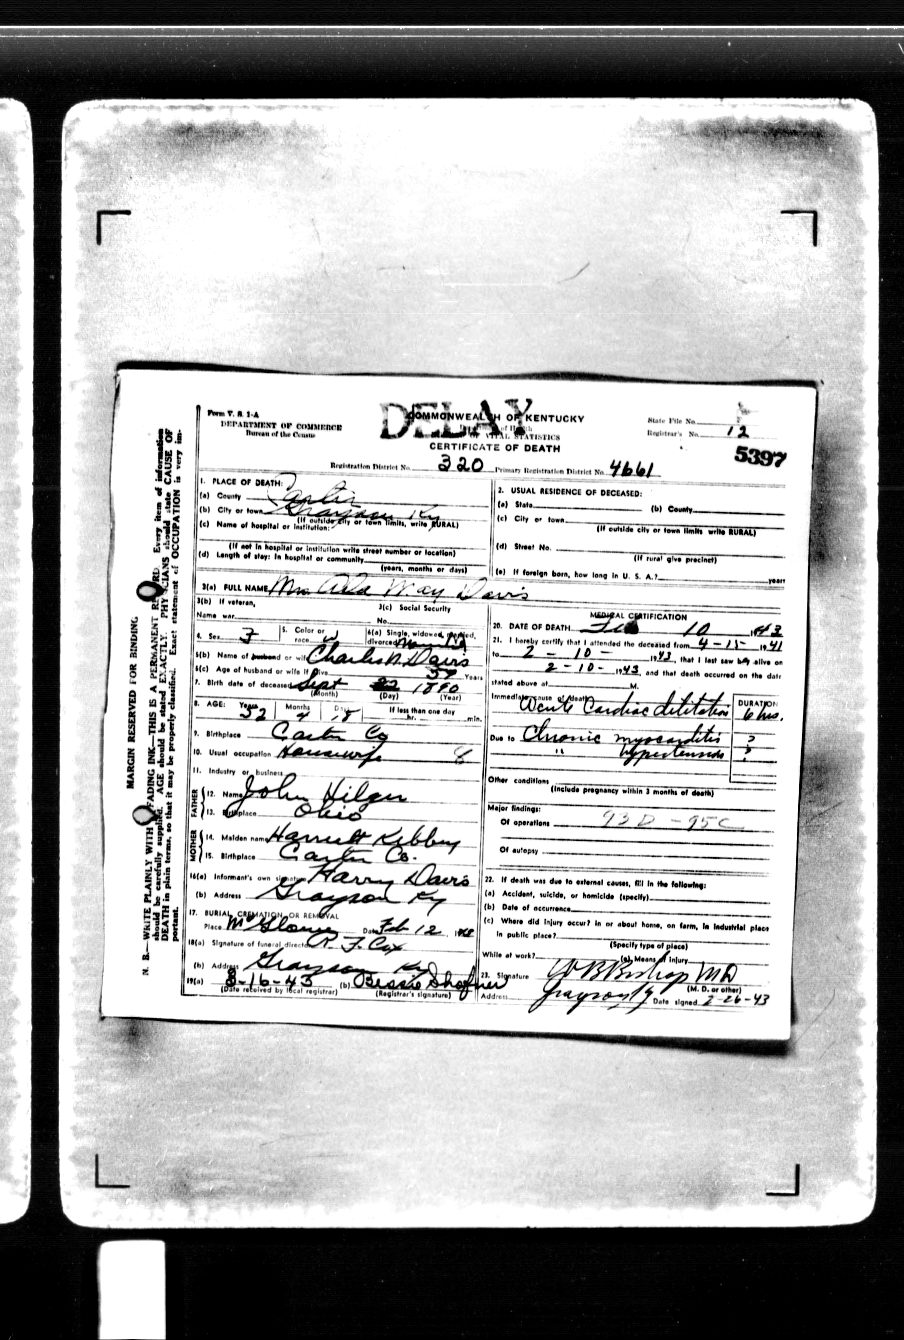 Form V. S. 1-A
DEPARTMENT OF COMMERCE
Bureau of the Census
DELAY
COMMONWEALTH OF KENTUCKY
of Health
OF VITAL STATISTICS
CERTIFICATE OF DEATH
State File No.
Registrar's No. 12
5397
Registration District No. 320 Primary Registration District No. 4661
MARGIN RESERVED FOR BINDING
N. B.—WRITE PLAINLY WITH FADING INK—THIS IS A PERMANENT RECORD Every item of information
should be carefully supplied. AGE should be stated EXACTLY. PHYSICIANS should state CAUSE OF
DEATH in plain terms, so that it may be properly classified. Exact statement of OCCUPATION is very im-
portant.
1. PLACE OF DEATH:
(a) County Carter
(b) City or town Grayson Ky
(If outside city or town limits, write RURAL)
(c) Name of hospital or institution:
(If not in hospital or institution write street number or location)
(d) Length of stay: In hospital or community
(years, months or days)
2. USUAL RESIDENCE OF DECEASED:
(a) State (b) County
(c) City or town
(If outside city or town limits write RURAL)
(d) Street No.
(If rural give precinct)
(e) If foreign born, how long in U. S. A.? years
3(a) FULL NAME Mrs Alda May Davis
3(b) If veteran,
Name war
3(c) Social Security
No.
4. Sex F
5. Color or
race w
6(a) Single, widowed, married,
divorced Married
6(b) Name of husband or wife Charles N Davis
6(c) Age of husband or wife if alive 59 Years
7. Birth date of deceased Sept 22 1890
(Month) (Day) (Year)
8. AGE: Years 52 Months 4 Days 18 If less than one day
hr. min.
9. Birthplace Carter Co
10. Usual occupation Housewife
11. Industry or business
FATHER
12. Name John Hilger
13. Birthplace Ohio
MOTHER
14. Maiden name Harriett Kibbey
15. Birthplace Carter Co.
16(a) Informant's own signature Harry Davis
(b) Address Grayson Ky
17. BURIAL, CREMATION, OR REMOVAL
Place McGlone Date Feb 12
18(a) Signature of funeral director R. F. Cox
(b) Address Grayson Ky
19(a) 3-16-43 (b) Bessie Shafner
(Date received by local registrar) (Registrar's signature)
MEDICAL CERTIFICATION
20. DATE OF DEATH Feb 10 1943
21. I hereby certify that I attended the deceased from 4-15-1941
to 2-10-1943, that I last saw her alive on
2-10-1943, and that death occurred on the date
stated above at M.
Immediate cause of death DURATION
Acute Cardiac dilitation 6 hrs.
Due to Chronic myocarditis ?
" hypertension ?
Other conditions
(Include pregnancy within 3 months of death)
Major findings:
Of operations 93D - 95C
Of autopsy
22. If death was due to external causes, fill in the following:
(a) Accident, suicide, or homicide (specify)
(b) Date of occurrence
(c) Where did injury occur? In or about home, on farm, in industrial place
in public place?
(Specify type of place)
While at work? (e) Means of injury
23. Signature W B Bishop MD
(M. D. or other)
Address Grayson Ky Date signed 2-26-43